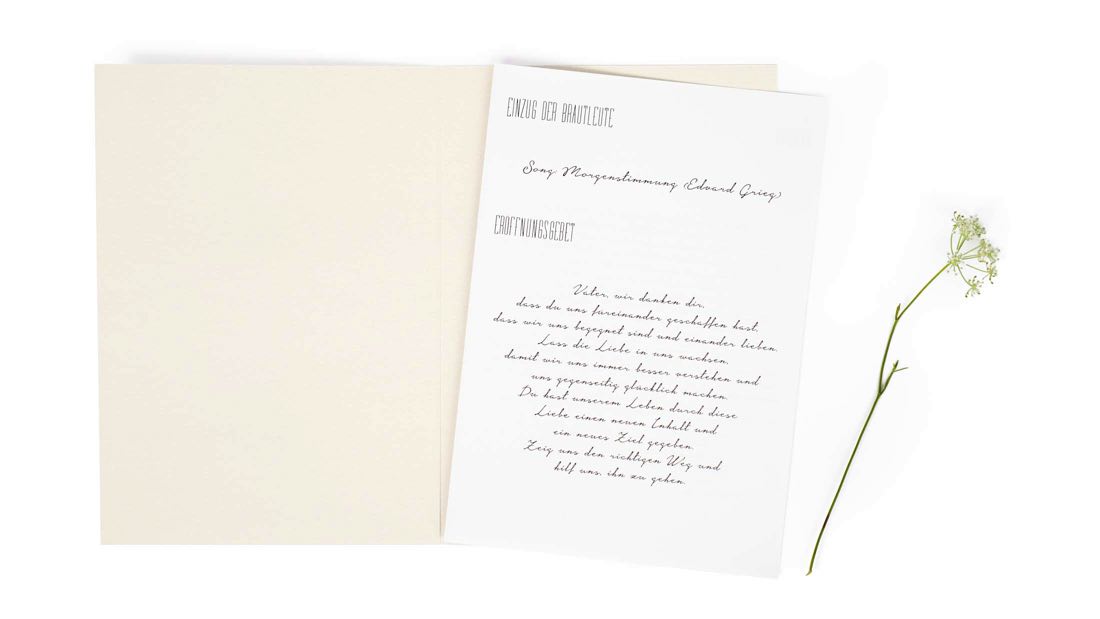 EINZUG DER BRAUTLEUTE
Song: Morgenstimmung (Edvard Grieg)
ERÖFFNUNGSGEBET
Vater, wir danken dir,
dass du uns füreinander geschaffen hast,
dass wir uns begegnet sind und einander lieben.
Lass die Liebe in uns wachsen,
damit wir uns immer besser verstehen und
uns gegenseitig glücklich machen.
Du hast unserem Leben durch diese
Liebe einen neuen Inhalt und
ein neues Ziel gegeben.
Zeig uns den richtigen Weg und
hilf uns, ihn zu gehen.